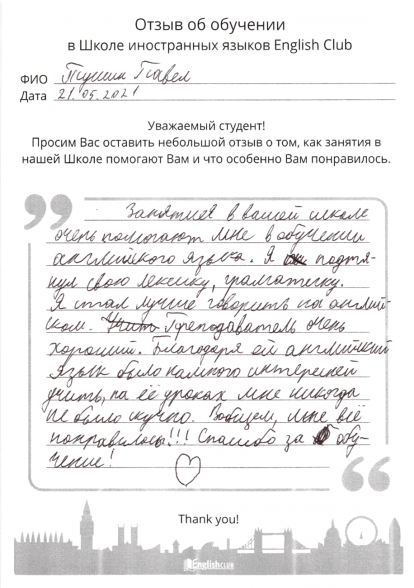 Отзыв об обучении
в Школе иностранных языков English Club
ФИО Пушин Павел
Дата 21.05.2021
Уважаемый студент!
Просим Вас оставить небольшой отзыв о том, как занятия в
нашей Школе помогают Вам и что особенно Вам понравилось.
Занятия в вашей школе
очень помогают мне в обучении
английского языка. Я подтя-
нул свою лексику, грамматику.
Я стал лучше говорить на англий-
ском. Преподаватель очень
хороший. Благодаря ей английский
язык было намного интересней
учить, на её уроках мне никогда
не было скучно. Вобщем, мне всё
понравилось!!! Спасибо за обу-
чение!
Thank you!
English CLUB